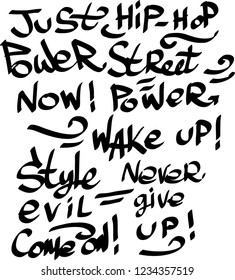 Just Hip-Hop
Power Street
Now! Power
Wake up!
Style Never
evil = give
Come on! up!
www.shutterstock.com · 1234357519